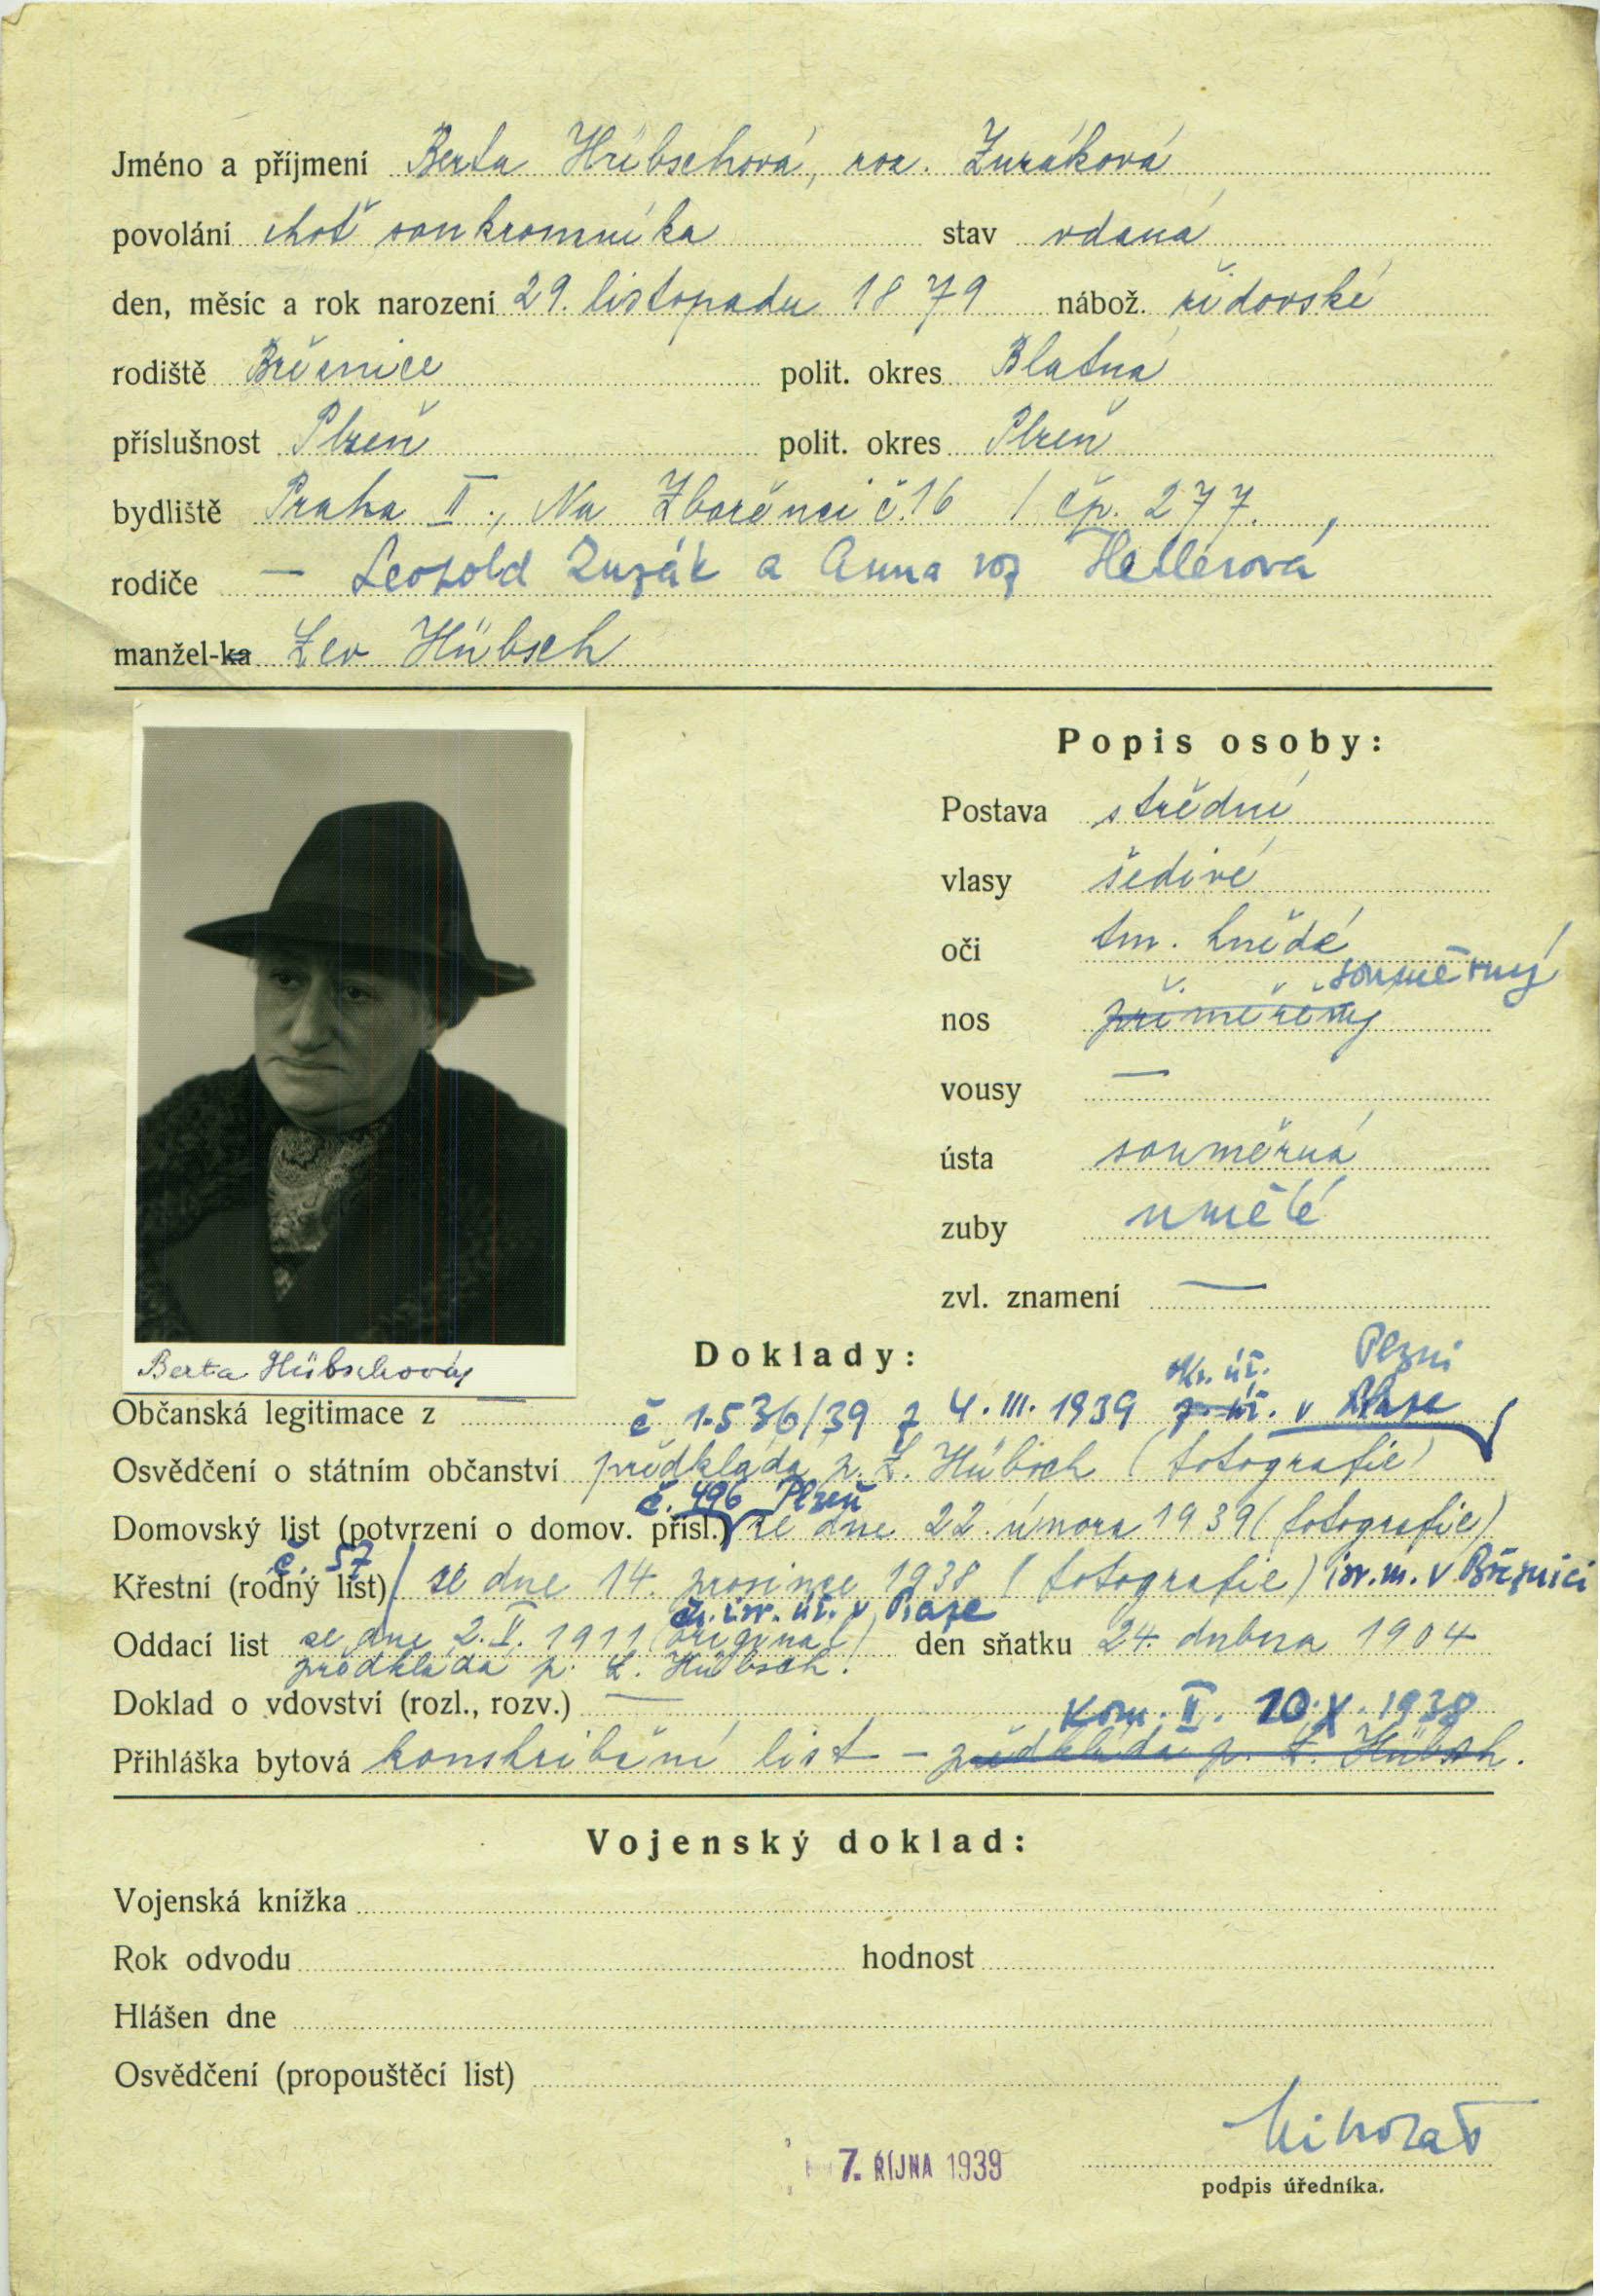 Jméno a příjmení Berta Hübschová, roz. Zuzáková
povolání choť soukromníka stav vdaná
den, měsíc a rok narození 29. listopadu 1879 nábož. židovské
rodiště Březnice polit. okres Blatná
příslušnost Plzeň polit. okres Plzeň
bydliště Praha II., Na Zbořenci č. 16 / čp. 277.,
rodiče — Leopold Zuzák a Anna roz Hellerová
manžel-ka Lev Hübsch
Popis osoby:
Postava střední
vlasy šedivé
oči tm. hnědé
souměrný
nos přiměřený
vousy —
ústa souměrná
zuby umělé
zvl. znamení —
Berta Hübschová
Doklady:
ok. úř. Plzni
Občanská legitimace z — č 1536/39 z 4. III. 1939 z. úř. v Praze
Osvědčení o státním občanství předkládá p. L. Hübsch (fotografie)
č. 496 Plzeň
Domovský list (potvrzení o domov. přísl.) ze dne 22. února 1939 (fotografie)
č. 57
Křestní (rodný list) ze dne 14. prosince 1938 (fotografie) isr. m. v Březnici
isr. úř. v Praze
Oddací list ze dne 2. V. 1911 (originál) den sňatku 24. dubna 1904
předkládá p. L. Hübsch.
Doklad o vdovství (rozl., rozv.) —
Kom. II. 10. X. 1938
Přihláška bytová konskribční list — předkládá p. L. Hübsch.
Vojenský doklad:
Vojenská knížka
Rok odvodu hodnost
Hlášen dne
Osvědčení (propouštěcí list)
7. ŘÍJNA 1939
podpis úředníka.